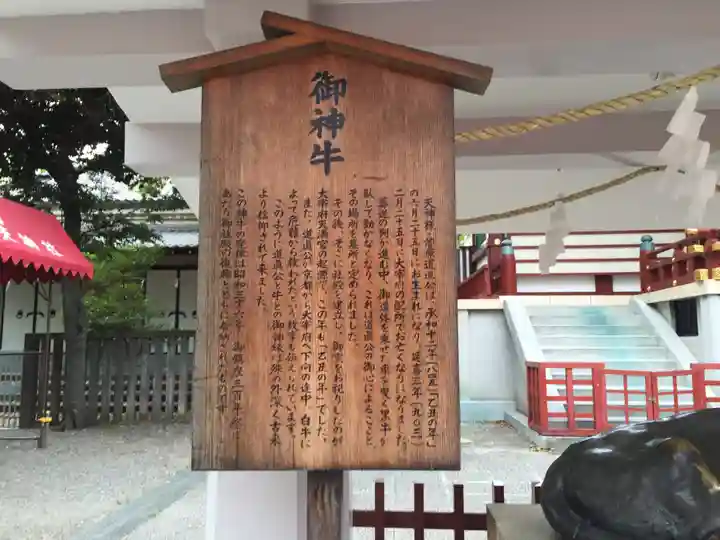 御神牛
天神様(菅原道真公)は、承和十二年(八四五)「乙丑の年」
の六月二十五日にお生まれになり、延喜三年(九〇三)
二月二十五日に大宰府の配所でお亡くなりになりました。
葬送の列が進む中、御遺骸を乗せた車を曳く黒牛が
臥して動かなくなり、これは道真公の御心によることと、
その場所を墓所と定められました。
その後、そこに社殿を建立し、御霊をお祀りしたのが
太宰府天満宮の起源で、この年も「乙丑の年」でした。
また、道真公が京都から大宰府へ下向の途中、白牛に
よって危難から救われたという故事も伝えられています。
このように道真公と牛との御神縁は殊の外深く古来
より信仰されて来ました。
この神牛の座像は昭和三十六年、御鎮座三百年祭に
あたり御社殿の復興と共に奉納されたものです。
天神社